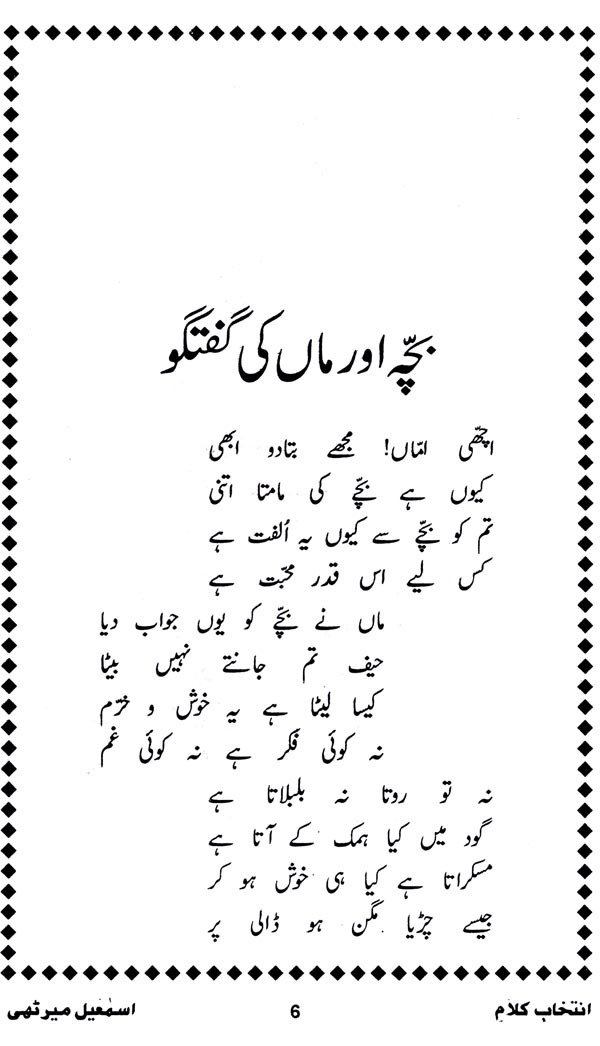 بچّہ اور ماں کی گفتگو
اچھّی امّاں! مجھے بتادو ابھی
کیوں ہے بچّے کی مامتا اتنی
تم کو بچّے سے کیوں یہ اُلفت ہے
کس لیے اس قدر محبّت ہے
ماں نے بچّے کو یوں جواب دیا
حیف تم جانتے نہیں بیٹا
کیسا لیٹا ہے یہ خوش و خرّم
نہ کوئی فکر ہے نہ کوئی غم
نہ تو روتا نہ بلبلاتا ہے
گود میں کیا ہمک کے آتا ہے
مسکراتا ہے کیا ہی خوش ہو کر
جیسے چڑیا مگن ہو ڈالی پر
انتخاب کلام 6 اسمٰعیل میرٹھی